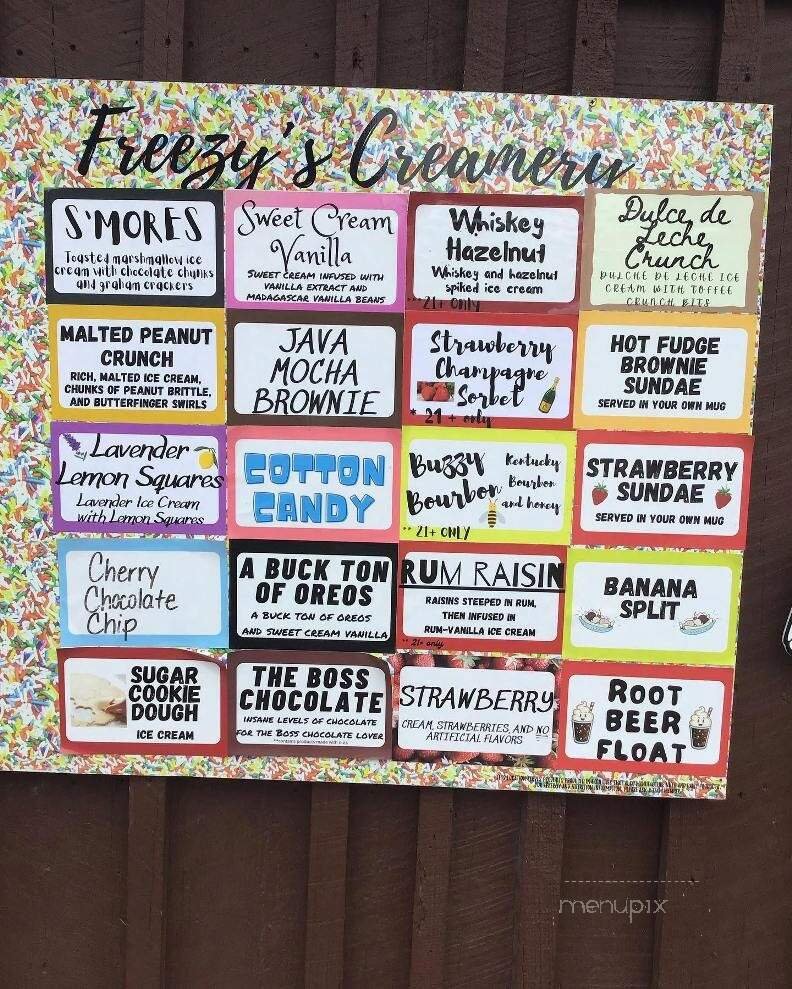 Freezy's Creamery
S'MORES
Toasted marshmallow ice
cream with chocolate chunks
and graham crackers
Sweet Cream
Vanilla
SWEET CREAM INFUSED WITH
VANILLA EXTRACT AND
MADAGASCAR VANILLA BEANS
Whiskey
Hazelnut
Whiskey and hazelnut
spiked ice cream
**21+ only
Dulce de
Leche
Crunch
DULCHE DE LECHE ICE
CREAM WITH TOFFEE
CRUNCH BITS
MALTED PEANUT
CRUNCH
RICH, MALTED ICE CREAM,
CHUNKS OF PEANUT BRITTLE,
AND BUTTERFINGER SWIRLS
JAVA
MOCHA
BROWNIE
Strawberry
Champagne
Sorbet
* 21 + only
HOT FUDGE
BROWNIE
SUNDAE
SERVED IN YOUR OWN MUG
Lavender
Lemon Squares
Lavender Ice Cream
with Lemon Squares
COTTON
CANDY
Buzzy
Bourbon
Kentucky
Bourbon
and honey
** 21+ ONLY
STRAWBERRY
SUNDAE
SERVED IN YOUR OWN MUG
Cherry
Chocolate
Chip
A BUCK TON
OF OREOS
A BUCK TON OF OREOS
AND SWEET CREAM VANILLA
RUM RAISIN
RAISINS STEEPED IN RUM,
THEN INFUSED IN
RUM-VANILLA ICE CREAM
** 21+ only
BANANA
SPLIT
SUGAR
COOKIE
DOUGH
ICE CREAM
THE BOSS
CHOCOLATE
INSANE LEVELS OF CHOCOLATE
FOR THE BOSS CHOCOLATE LOVER
STRAWBERRY
CREAM, STRAWBERRIES, AND NO
ARTIFICIAL FLAVORS
ROOT
BEER
FLOAT
menupix